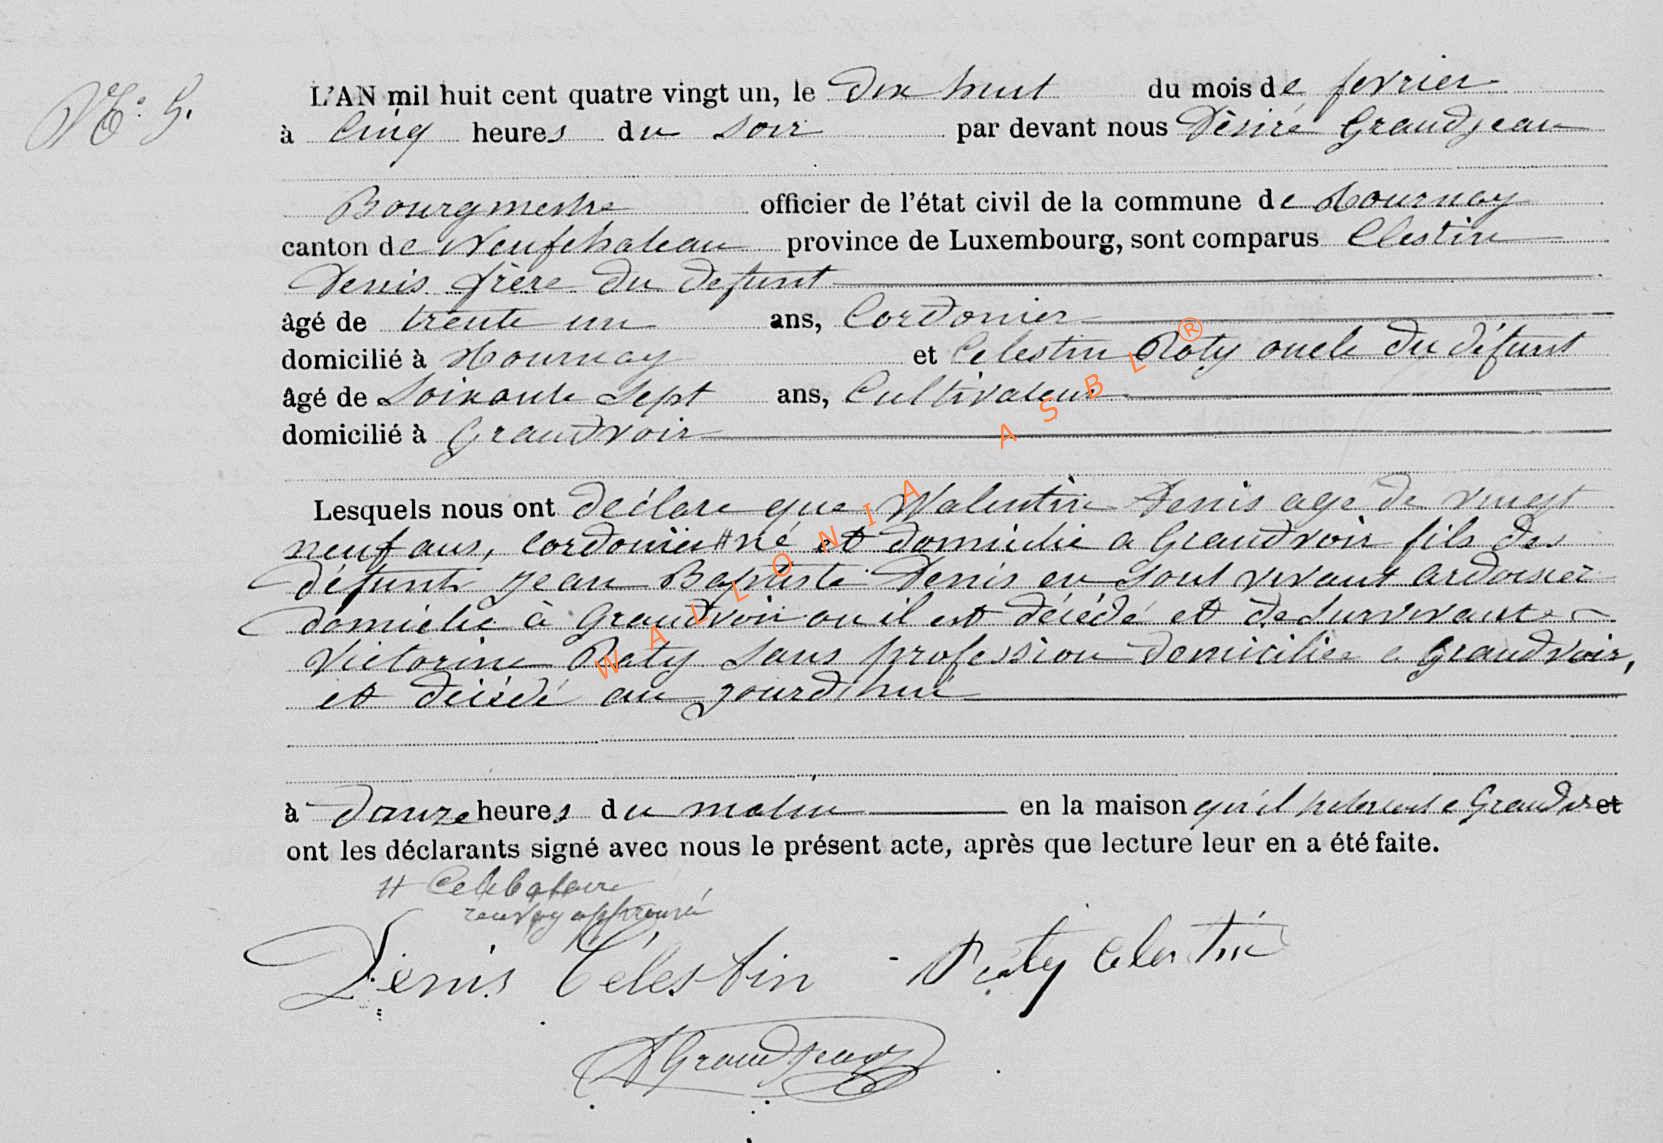 N°: 5.
L'AN mil huit cent quatre vingt un, le dix huit du mois de fevrier
à Cinq heures du soir par devant nous Désiré Grandjean
Bourgmestre officier de l'état civil de la commune de Tournay
canton de Neufchateau province de Luxembourg, sont comparus Clestin
Denis frère du defunt
âgé de trente un ans, Cordonier
domicilié à Tournay et Celestin Roty oncle du défunt
âgé de Soixante Sept ans, Cultivateur
domicilié à Grandvoir
Lesquels nous ont déclare que Walentin Denis age de vingt
neuf ans, cordonier # né et domicilie a Grandvoir fils de
défunt Jean Baptiste Denis en sont vivant ardoisier
domicilie à Grandvoir ou il est décédé et de survivante
Victorine Raty sans profession domiciliée a Grandvoir,
et décédé au jourd'hui
à douze heures du matin en la maison qu'il et
ont les déclarants signé avec nous le présent acte, après que lecture leur en a été faite.
# Celibataire
renvoy approuvé
Denis Célestin - Raty Celestin
DGrandjean
WALLONIA ASBL ®